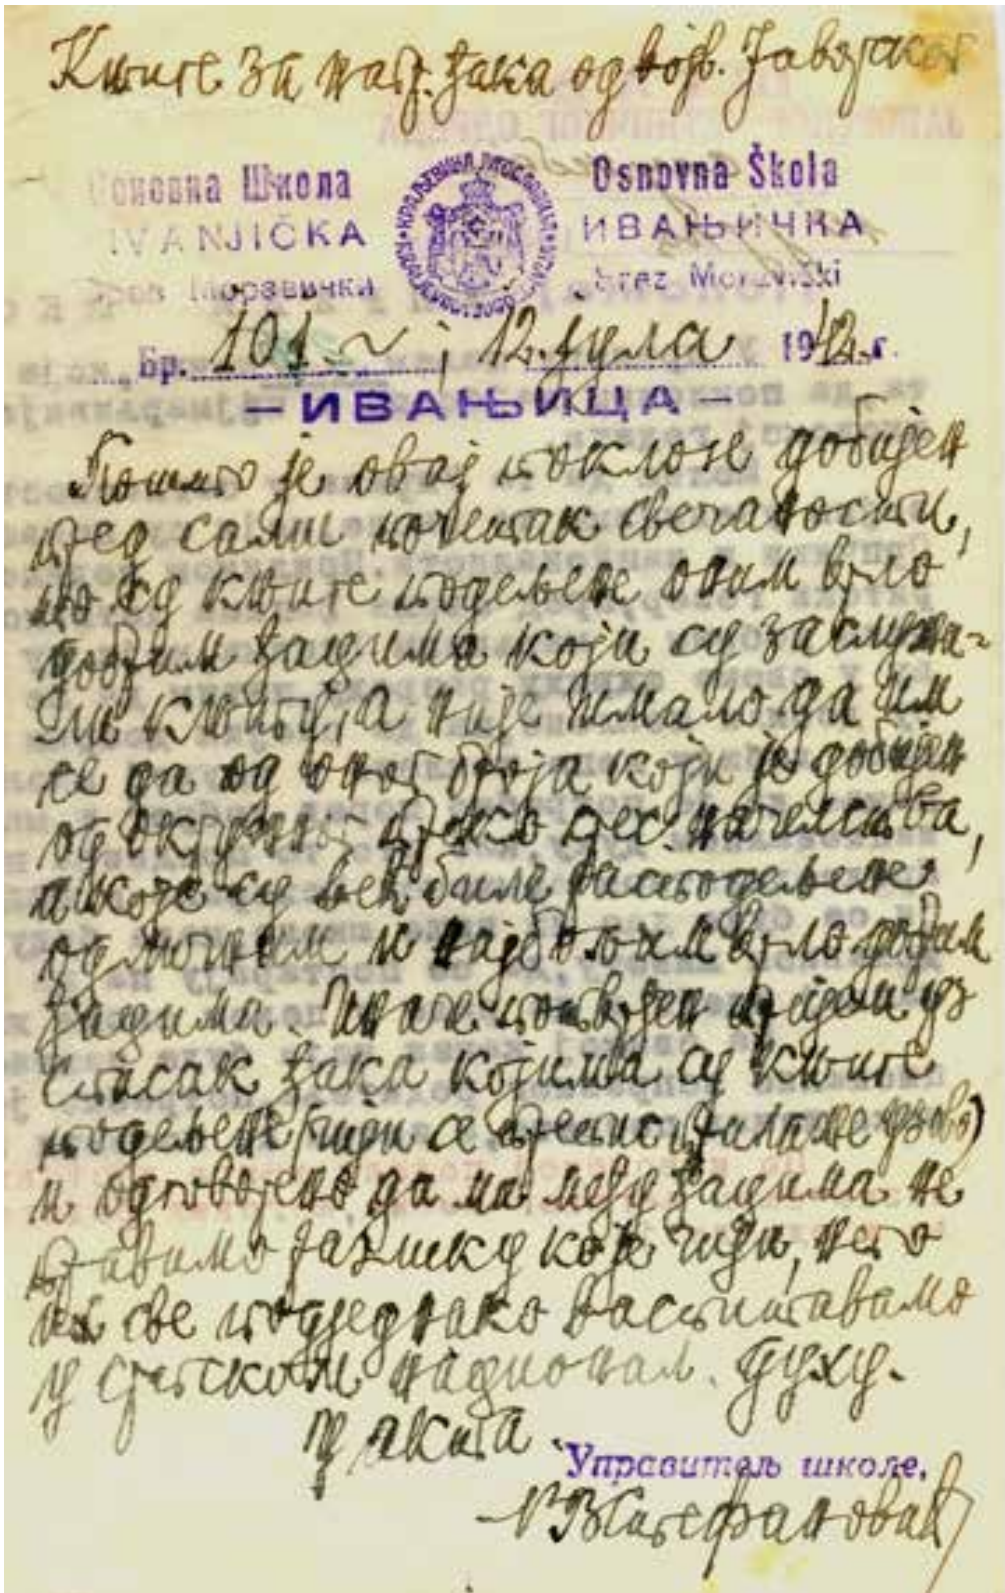 Књиге за нагр. ђака од војв. Јаворског
Основна Школа
IVANJIČKA
Срез Моравички
КРАЉЕВИНА ЈУГОСЛАВИЈА
Osnovna Škola
ИВАЊИЧКА
Srez Moravički
Бр. 101 ~ ; 12. јула 1942.г.
— ИВАЊИЦА —
Пошто је овај поклон добијен
пред сами почетак свечаности,
то су књиге подељене оним врло
добрим ђацима који су заслужи-
ли књигу, а није имало да им
се да од оног броја који је добијен
од окружног преко срес. начелства,
а које су већ биле расподељене
одличним и најбољим врло добрим
ђацима. Иначе потврђен пријем уз
списак ђака којима су књиге
подељене
и одговорено да ми међу ђацима не
правимо разлику које чији, него
их све подједнако васпитавамо
у српском национал. духу.
У акта.
Управитељ школе,
Стефановић